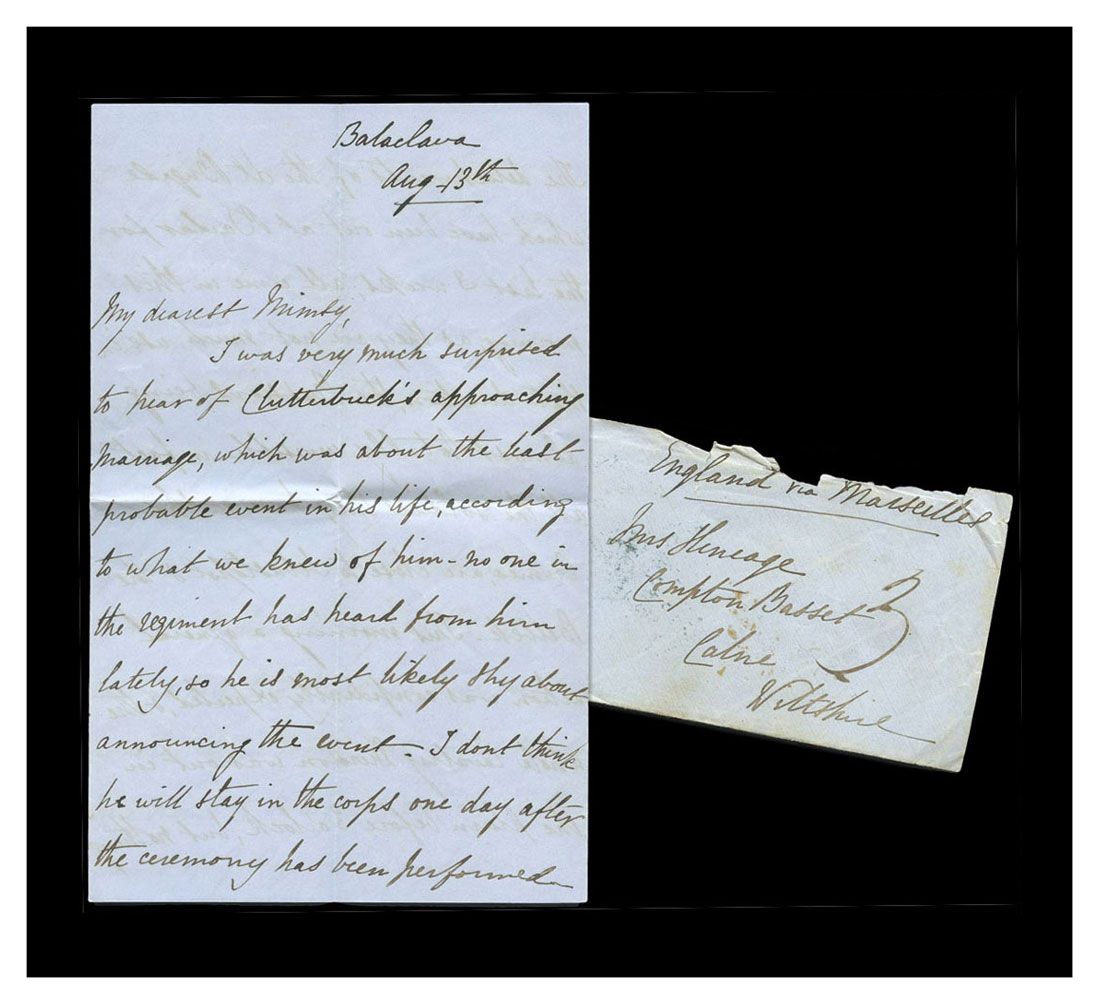 Balaclava
Aug 13th
My dearest Mimsy,
I was very much surprised
to hear of Clutterbuck's approaching
marriage, which was about the least
probable event in his life, according
to what we knew of him - no one in
the regiment has heard from him
lately, so he is most likely shy about
announcing the event - I dont think
he will stay in the corps one day after
the ceremony has been performed
England via Marseilles
Mrs Heneage
Compton Basset
Calne
Wiltshire
3